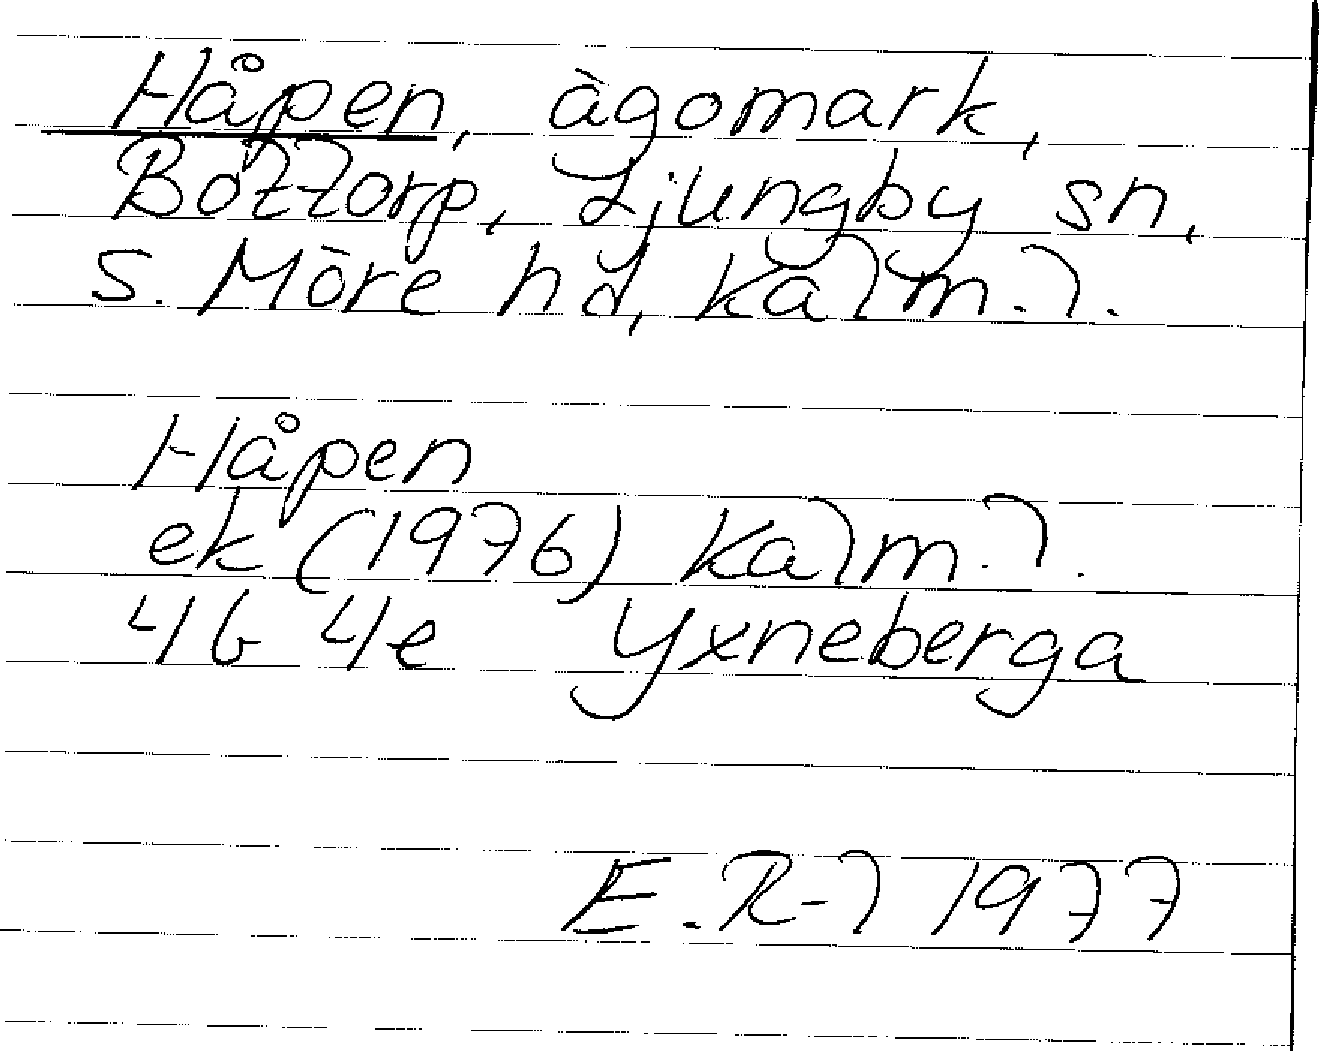 Håpen, ägomark,
Bottorp, Ljungby sn,
S. Möre hd, Kalm. l.
Håpen
ek (1976) Kalm. l.
4G 4e Yxneberga
E. R-l 1977